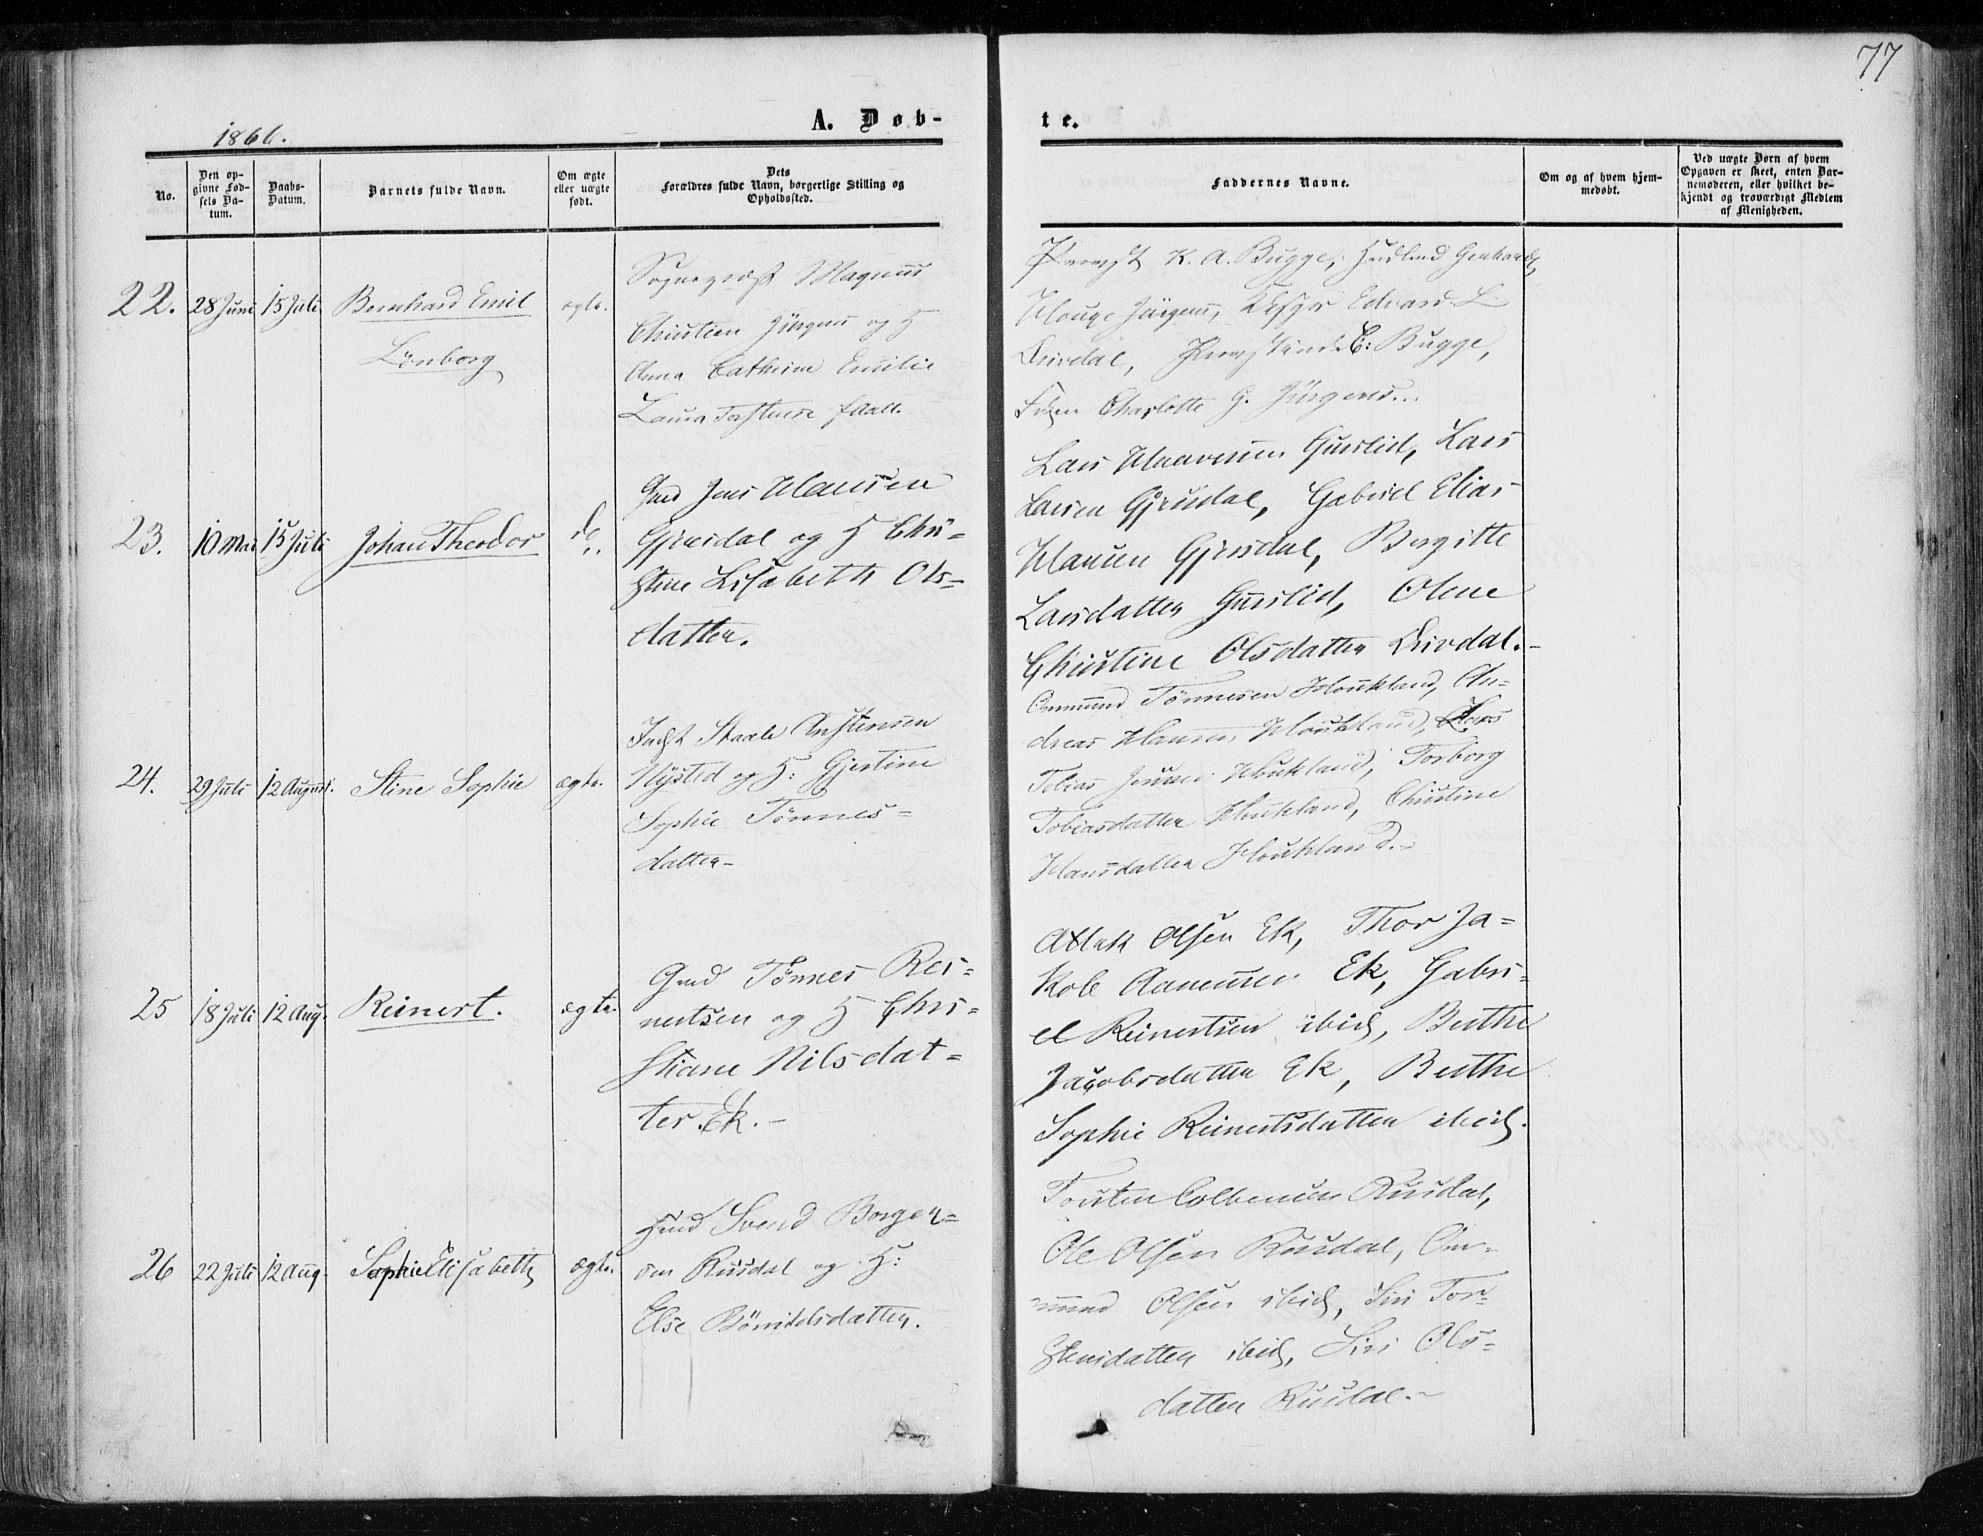 77
1866.
A. Døb-
te.
No.
Den op-
givne Fød-
sels Da-
tum.
Daabs-
Datum.
Barnets fulde Navn.
Om ægte
eller uægte
født.
Dets
Forældres fulde Navn, borgerlige Stilling og
Opholdssted.
Faddernes Navne.
Om og af hvem hjem-
medøbt.
Ved uægte Børn af hvem
Opgaven er skeet, enten Bar-
nemoderen, eller hvilket be-
kjendt og troværdigt Medlem
af Menigheden.
22. 28 Juni 15 Juli Bernhard Emil
Lønborg
ægte.
Sognepræst Magnus
Christian Jürgens og H
Anna Cathrine Emilie
Laura
Provst K. A. Bugge,
Houge Jürgens, Edvard L
Dirdal, C: Bugge,
Frøken Charlotte G. Jürgens.
23. 10 Mai 15 Juli Johan Theodor
do
Gmd Jens Hansen
Gjersdal og H Chri-
stine Lisabeth Ols-
datter.
Lars Haaversen Guslid, Lars
Larsen Gjersdal, Gabriel Elias
Hansen Gjersdal, Bergitte
Larsdatter Guslid, Olene
Christine Olsdatter Dirdal.
24. 29 Juli 12 August. Stine Sophie ægte.
Indst Staale Anstensen
Nysted og H: Gjertine
Sophie Tønnes-
datter
Ommund Tønnesen Houkland, An-
dreas Hansen Houkland,
Tobias Jensen Houkland, Torborg
Tobiasdatter Houkland, Christine
Hansdatter Houkland.
25 18 Juli 12 Aug. Reinert. ægte.
Gmd Tønnes Rei-
nertsen og H Chri-
stiane Nilsdat-
ter Ek.
Atlak Olsen Ek, Thor Ja-
kob Aanensen Ek, Gabri-
el Reinertsen ibid, Berthe
Jacobsdatter Ek, Berthe
Sophie Reinertsdatter ibid.
26 22 Juli 12 Aug. Sophie Elisabeth ægte.
Hmd Svend Borger-
sen Rusdal og H:
Else Bønildsdatter.
Torsten Colbensen Rusdal,
Ole Olsen Rusdal, Om-
mund Olsen ibid, Siri Tor-
stensdatter ibid, Siri Ols-
datter Rusdal.